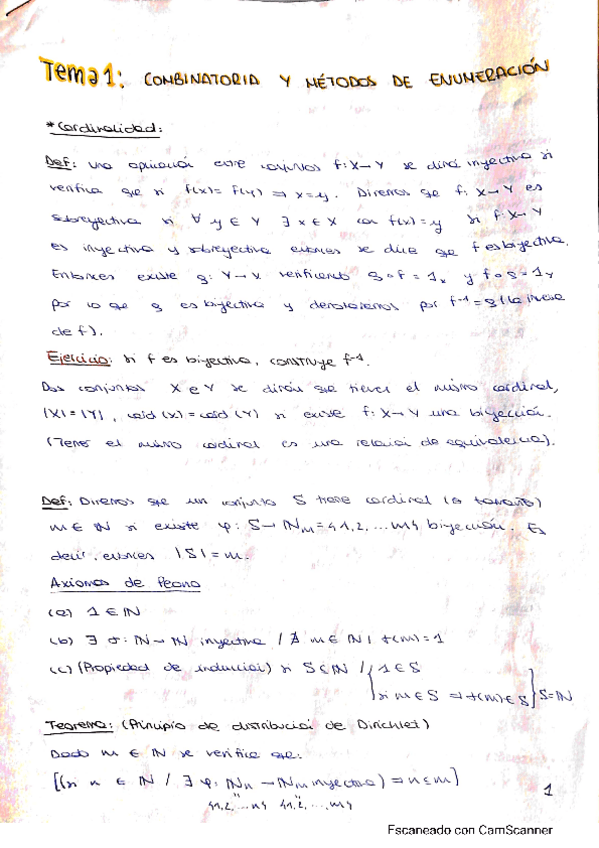 Tema 1: COMBINATORIA Y MÉTODOS DE ENUMERACIÓN
* Cardinalidad:
Def: una aplicación entre conjuntos f: X→Y se dirá inyectiva si
verifica que si f(x) = f(y) ⇒ x=y. Diremos que f: X→Y es
sobreyectiva si ∀ y ∈ Y ∃ x ∈ X con f(x) = y Si f: X→Y
es inyectiva y sobreyectiva entonces se dice que f es biyectiva.
Entonces existe g: Y→X verificando g∘f = 1x y f∘g = 1y
por lo que g es biyectiva y denotaremos por f⁻¹ = g (la inversa
de f).
Ejercicio: si f es biyectiva, construye f⁻¹.
Dos conjuntos X e Y se dirán que tienen el mismo cardinal,
|X| = |Y|, card (x) = card (Y) si existe f: X→Y una biyección.
(Tener el mismo cardinal es una relación de equivalencia).
Def: Diremos que un conjunto S tiene cardinal (o tamaño)
m ∈ ℕ si existe φ: S→ℕm = {1,2,...m} biyección. Es
decir, entonces |S| = m.
Axiomas de Peano
(a) 1 ∈ ℕ
(b) ∃ σ: ℕ→ℕ inyectiva / ∄ m ∈ ℕ / σ(m) = 1
(c) (Propiedad de inducción) si S⊂ℕ / { 1 ∈ S
si m ∈ S ⇒ σ(m) ∈ S } S=ℕ
Teorema: (Principio de distribución de Dirichlet)
Dado m ∈ ℕ se verifica que:
[(si n ∈ ℕ / ∃ φ: ℕn → ℕm inyectiva) ⇒ n ≤ m]
{1,2,...n} {1,2,...,m}
1
Escaneado con CamScanner